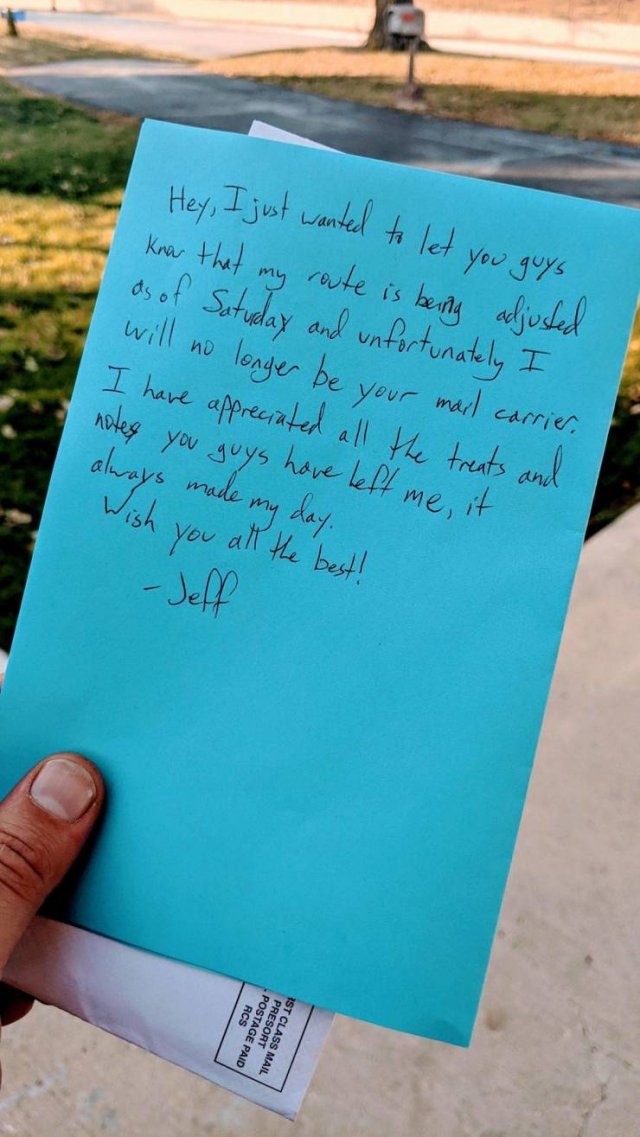 Hey, I just wanted to let you guys
know that my route is being adjusted
as of Saturday and unfortunately I
will no longer be your mail carrier.
I have appreciated all the treats and
notes you guys have left me, it
always made my day.
Wish you all the best!
- Jeff
ST CLASS MAIL
PRESORT
POSTAGE PAID
RCS